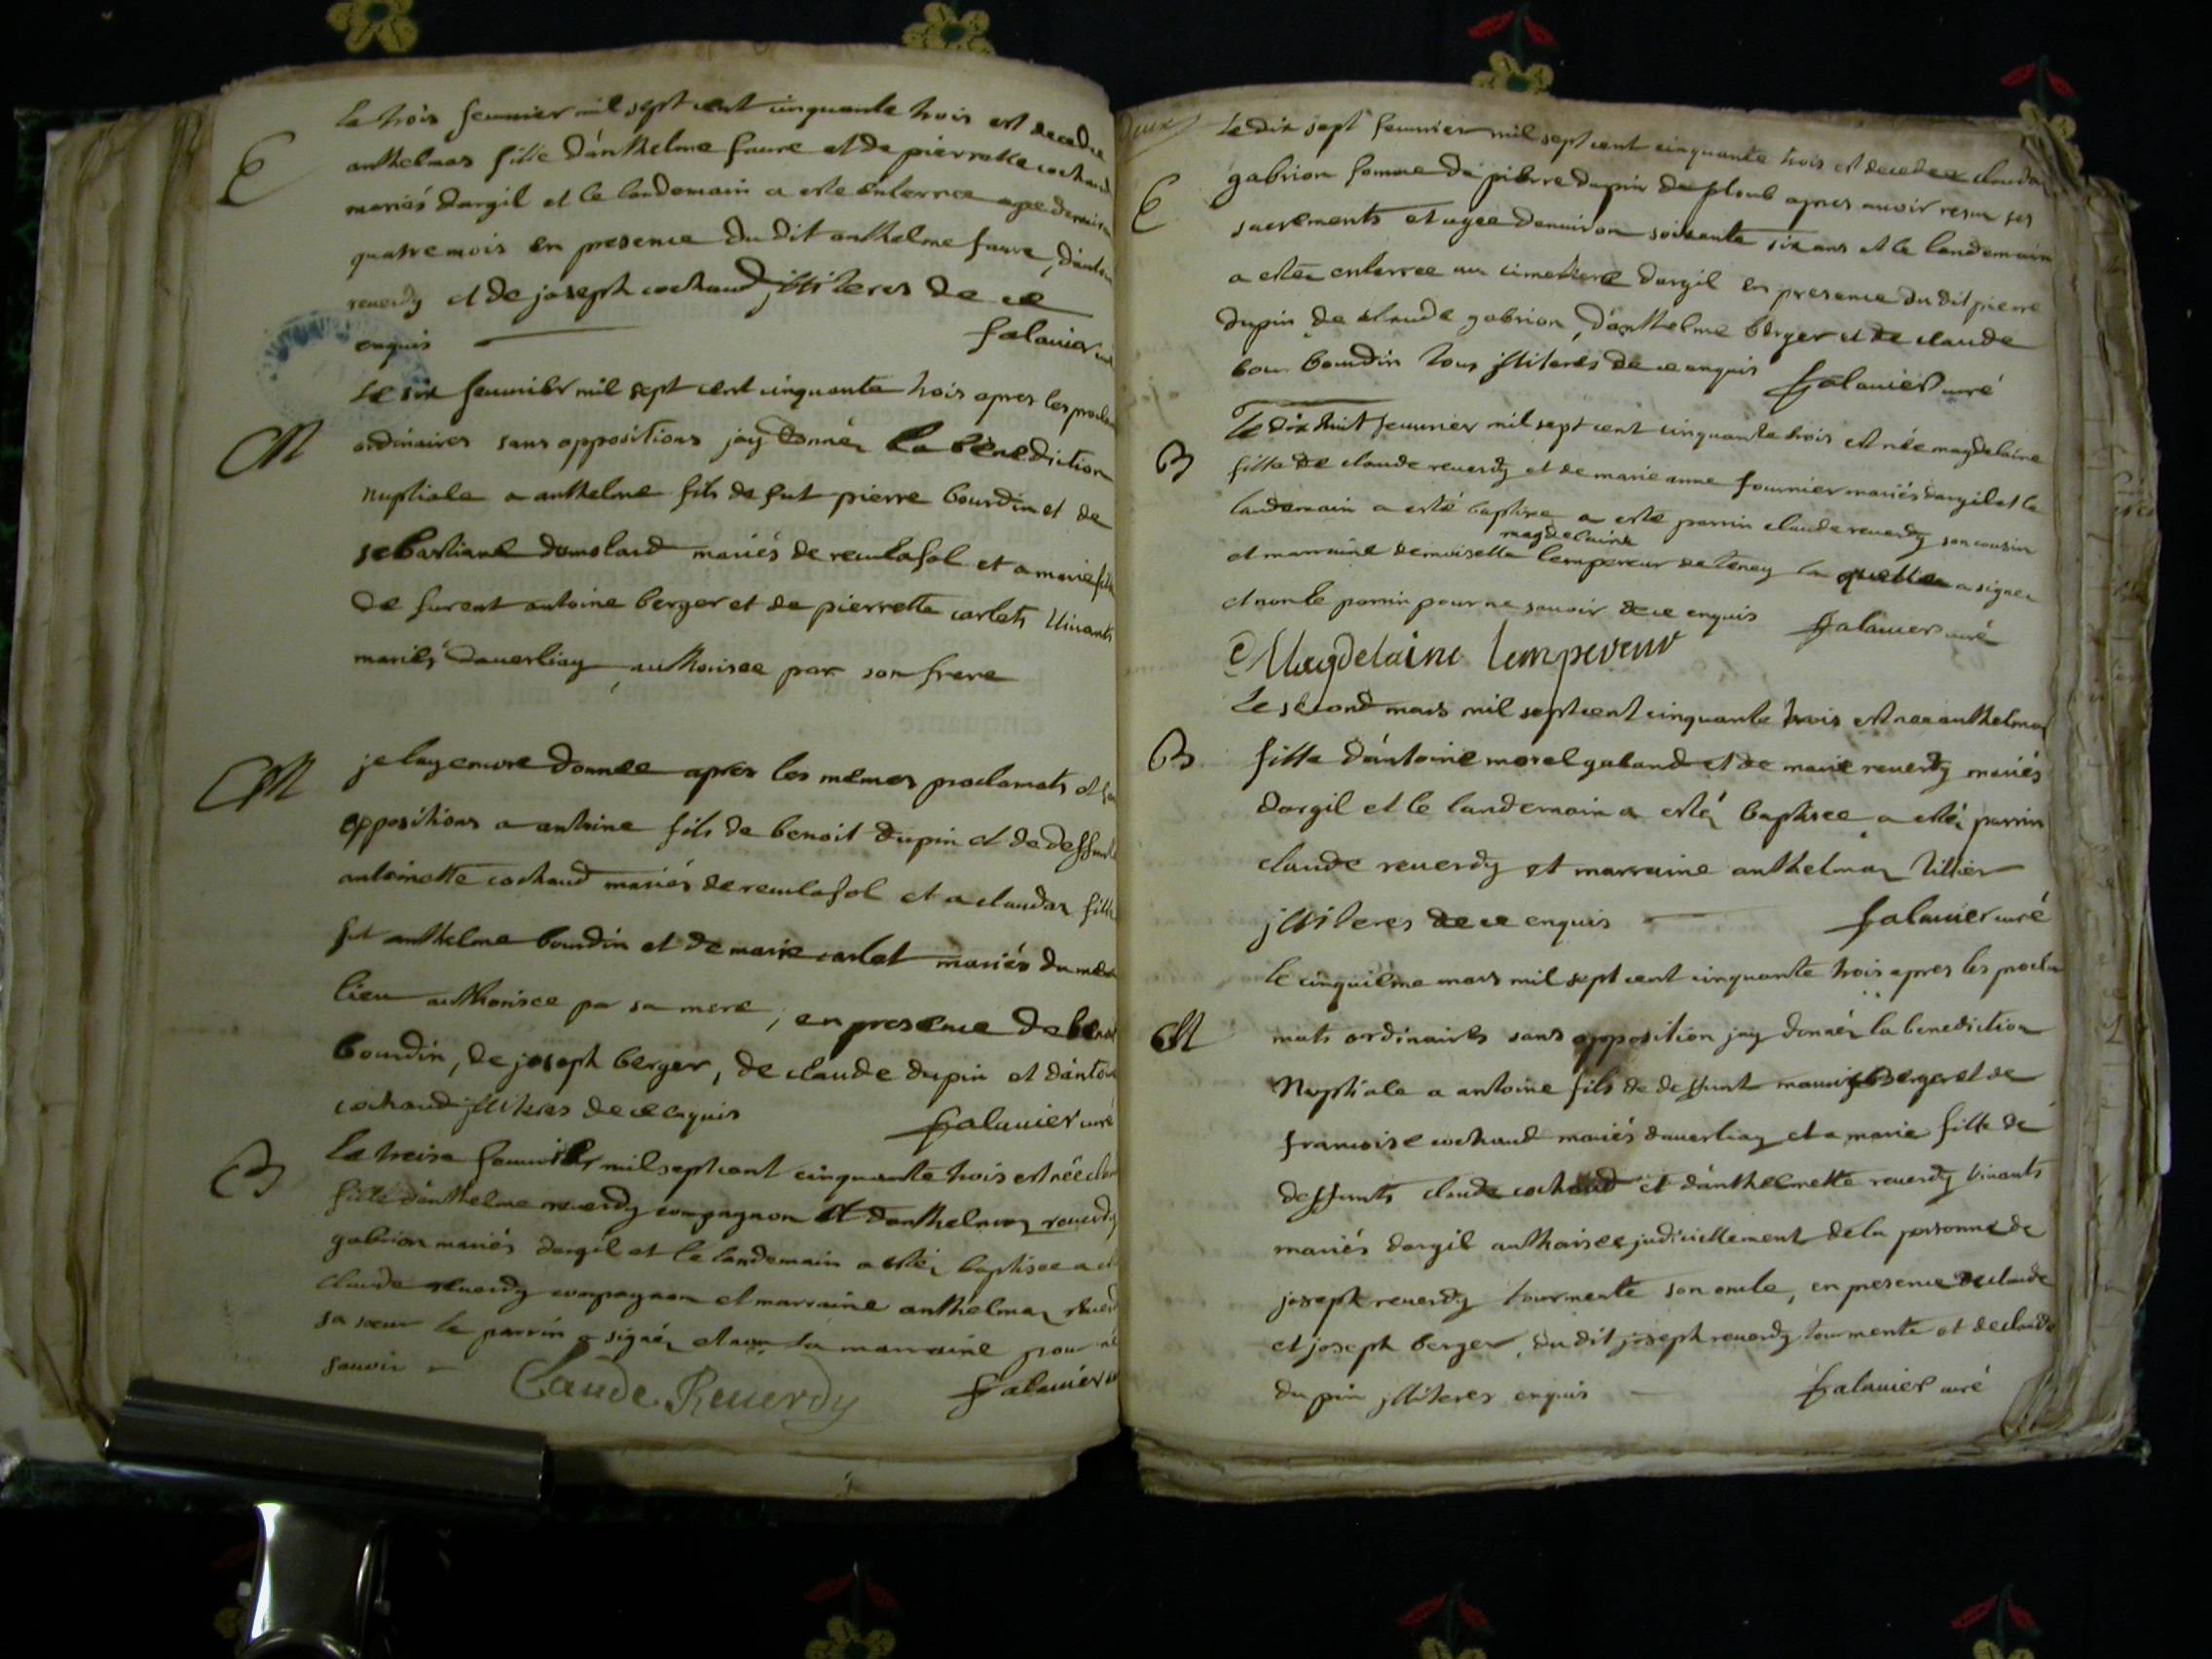 E
le trois feuurier mil sept cent cinquante trois est decedee
anthelmaz fille d'anthelme faure et de pierrette cochaud
mariés dargil et le landemain a esté enterree agee denuiron
quatre mois en presence du dit anthelme faure, d'antoine
reuerdy et de joseph cochaud jlliteres de ce
enquis falauier curé
M
Le six feuurier mil sept cent cinquante trois apres les procla
ordinaires sans oppositions jay donnéz la benediction
nuptiale a anthelme fils de fut pierre bourdin et de
sebastiane domolard mariés de reculafol et a marie fille
de furent antoine berger et de pierrette carlets viuants
mariés dauerliay authorisee par son frere
M
je lay encore donnee apres les memes proclamats et sans
oppositions a antoine fils de benoit dupin et de deffunte
antoinette cochaud mariés de reculafol et a claudaz fille
fut anthelme bourdin et de marie carlet mariés du meme
lieu authorisee par sa mere, en presence de benoit
bourdin, de joseph berger, de claude dupin et d'antoine
cochaud jlliteres de ce enquis falauier curé
B
Le treize feuurier mil sept cent cinquante trois est née
fille d'anthelme reuerdy compagnon et danthelmaz reuerdy
gabrion mariés dargil et le landemain a estéz baptisee a
claude reuerdy compagnon et marraine anthelmaz reuerdy
sa soeur le parrin a signéz et non la marraine pour ne
sauoir Claude Reuerdy falauier
deux
Le dix sept feuurier mil sept cent cinquante trois est decedee claudaz
E
gabrion femme de pierre dupin de plomb apres auoir resu ses
sacrements et agee denuiron soixante six ans et le landemain
a estéz enterree au cimetiere dargil en presence du dit pierre
dupin de claude gabrion, d'anthelme berger et de claude
bour bourdin tous jlliteres de ce enquis falauier curé
Le dix huit feuurier mil sept cent cinquante trois est née magdelaine
B
fille de claude reuerdy et de marie anne fournier mariés dargil et le
landemain a esté baptisee a esté parrin claude reuerdy son cousin
magdelaine
et marraine demoiselle lempereur de teney la quelle a signez
et non le parrin pour ne sauoir de ce enquis falauier curé
Magdelaine lempereur
Le second mars mil sept cent cinquante trois est nee anthelmaz
B
fille d'antoine morel galand et de marie reuerdy mariés
dargil et le landemain a estéz baptisee a estéz parrin
claude reuerdy et marraine anthelmaz tillier
jlliteres de ce enquis falauier curé
le cinquieme mars mil sept cent cinquante trois apres les procla
M
mats ordinaires sans opposition jay donnéz la benediction
Nuptiale a antoine fils de deffunt berger et de
francoise cochaud mariés dauerliay et a marie fille de
deffunts claude cochaud et d'anthelmette reuerdy viuants
mariés dargil authorisee judiciellement de la personne de
joseph reuerdy tourmente son oncle, en presence de claude
et joseph berger, du dit joseph reuerdy tourmente et de claude
dupin jlliteres enquis falauier curé